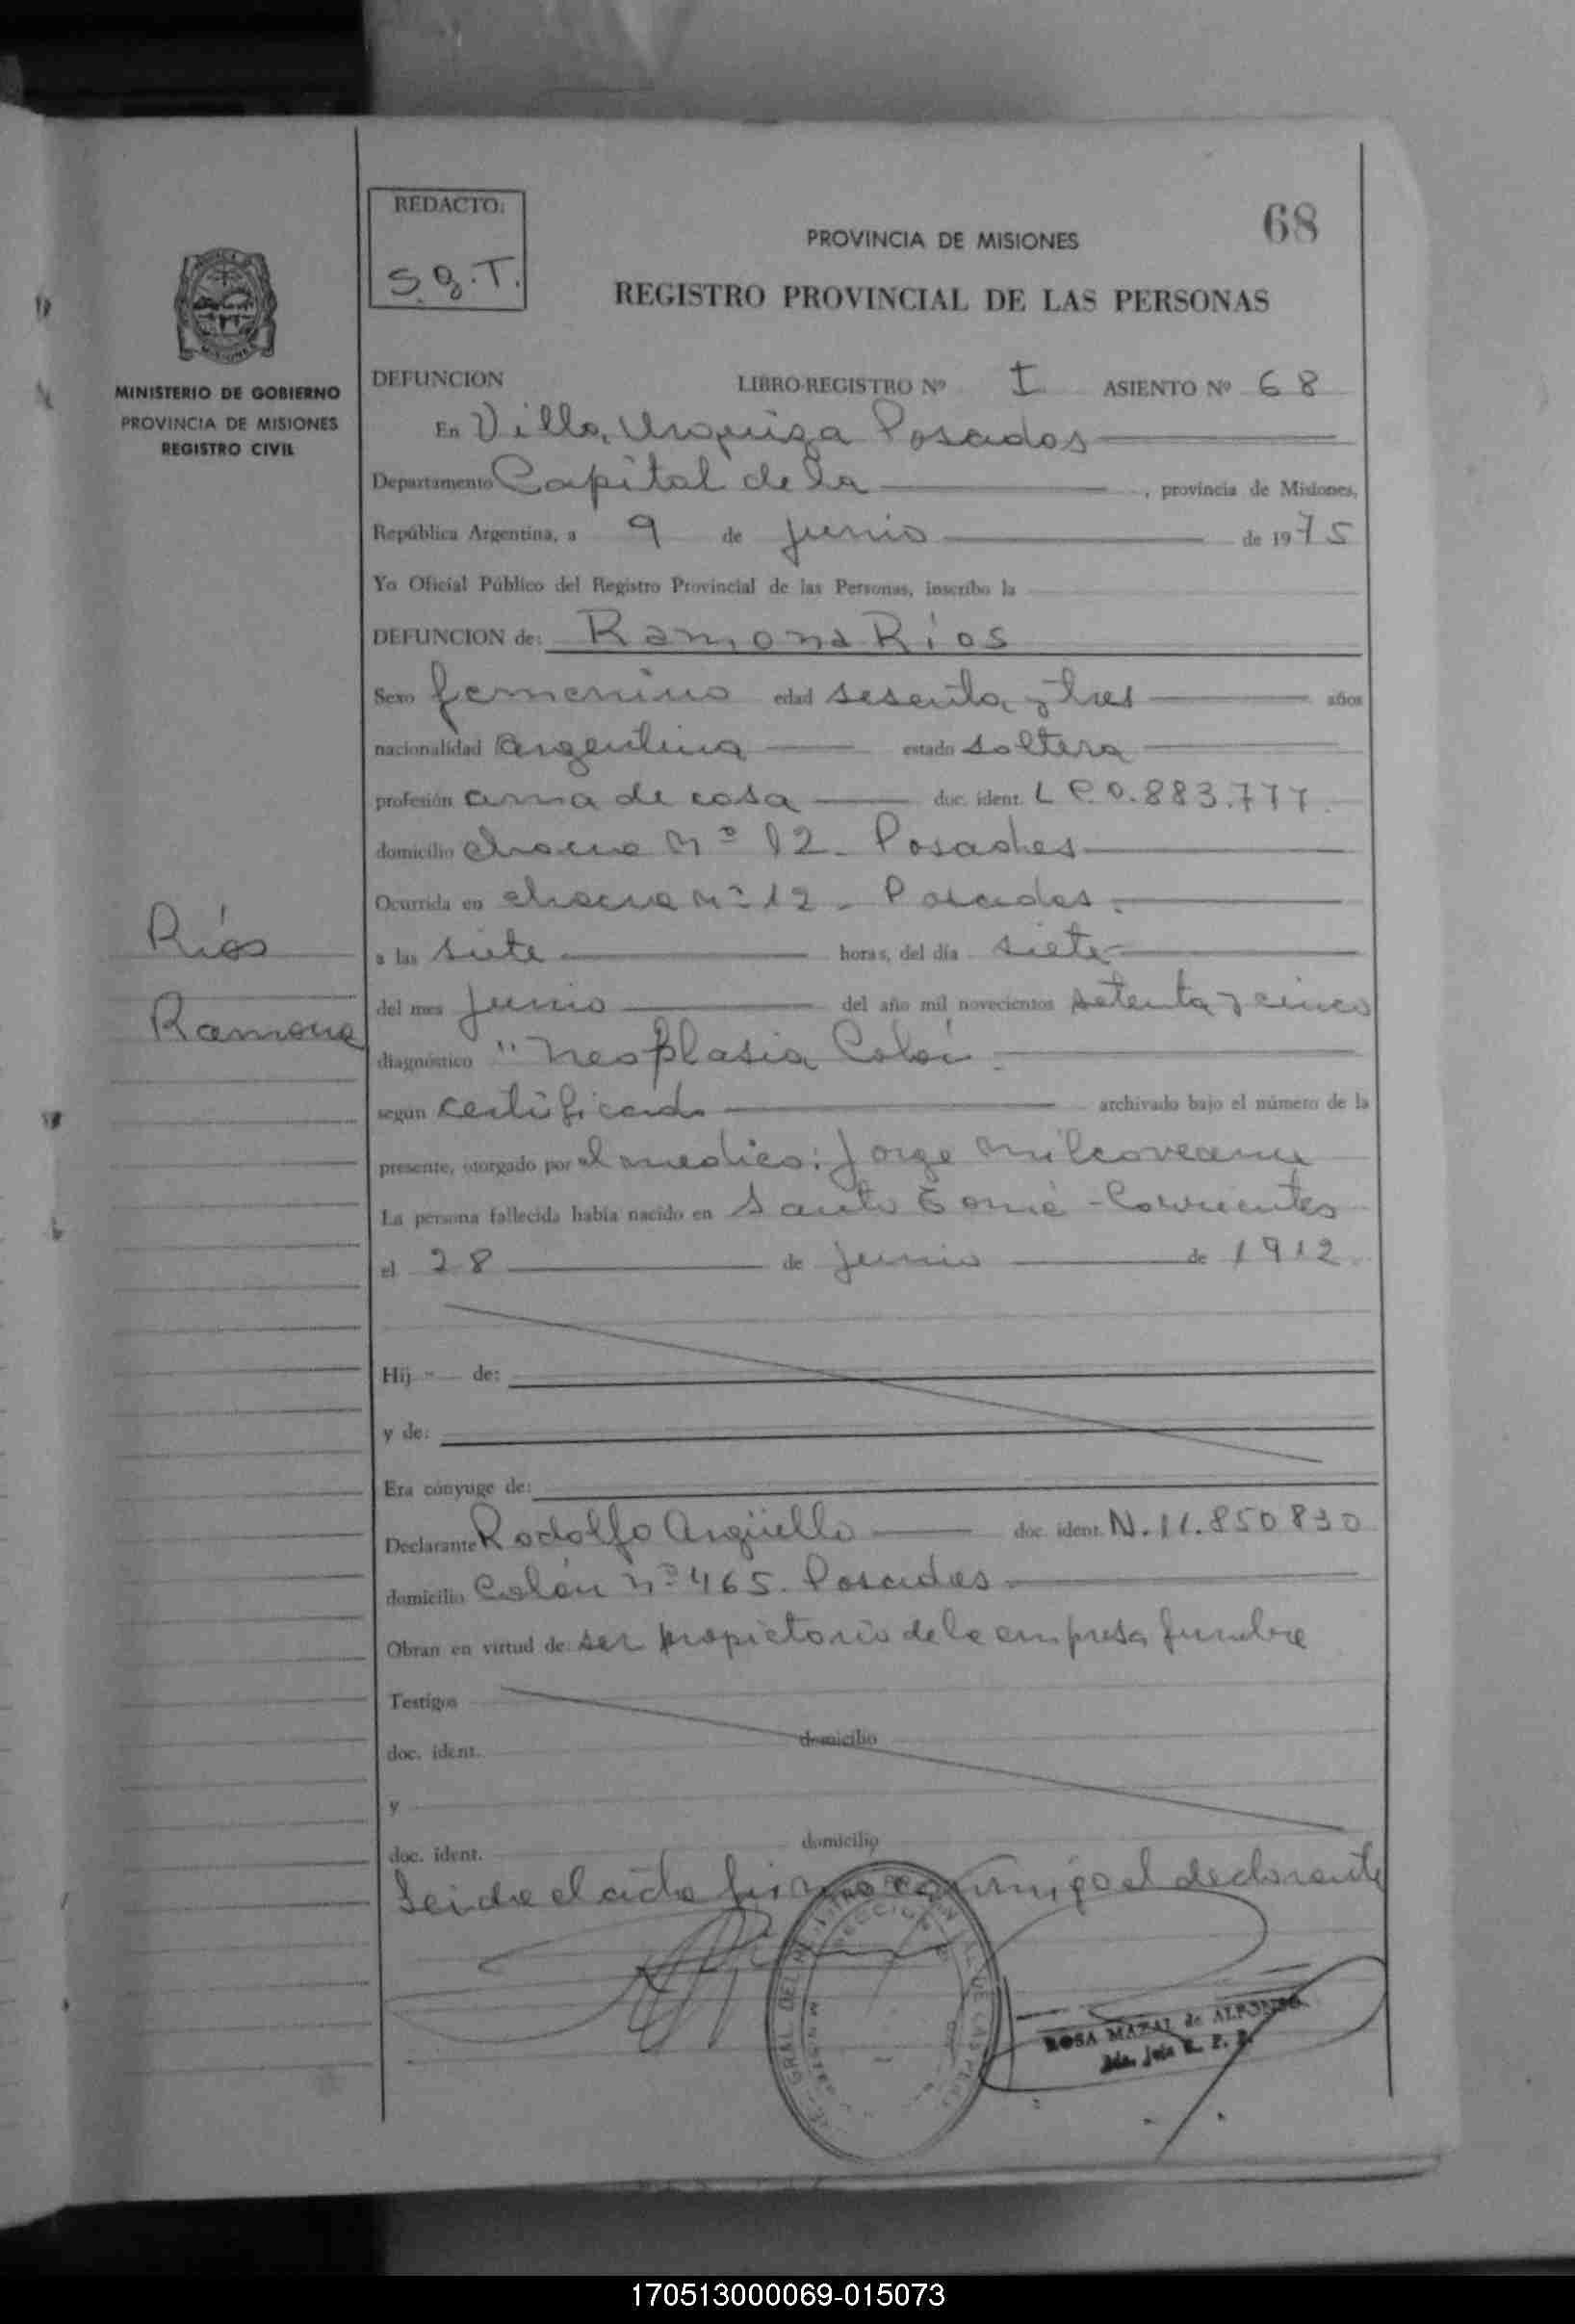 REDACTO:
S.g.T.
68
PROVINCIA DE MISIONES
REGISTRO PROVINCIAL DE LAS PERSONAS
MISIONES
MINISTERIO DE GOBIERNO
PROVINCIA DE MISIONES
REGISTRO CIVIL
DEFUNCION LIBRO-REGISTRO Nº I ASIENTO Nº 68
En Villa Urquiza Posadas
Departamento Capital de la , provincia de Misiones,
República Argentina, a 9 de junio de 1975
Yo Oficial Público del Registro Provincial de las Personas, inscribo la
DEFUNCION de: Ramona Ríos
Sexo femenino edad sesenta y tres años
nacionalidad argentina estado soltera
profesión ama de casa doc. ident. L C.0.883.777.
domicilio chacra Nº 12 - Posadas
Ocurrida en chacra nº 12 - Posadas.
Ríos
a las siete horas, del día siete
Ramona
del mes junio del año mil novecientos setenta y cinco
diagnóstico "neoplasia Colon
según certificado archivado bajo el número de la
presente, otorgado por el medico: Jorge
La persona fallecida había nacido en Santo Tomé - Corrientes
el 28 de junio de 1912
Hij de:
y de:
Era cónyuge de:
Declarante Rodolfo Argüello doc. ident. N. 11.850830
domicilio Colón nº 465. Posadas
Obran en virtud de: ser propietario de la empresa funebre
Testigos
doc. ident. domicilio
y
doc. ident. domicilio
Leida el acta firma conmigo el declarante
ROSA MAZAL de ALFONSO
170513000069-015073